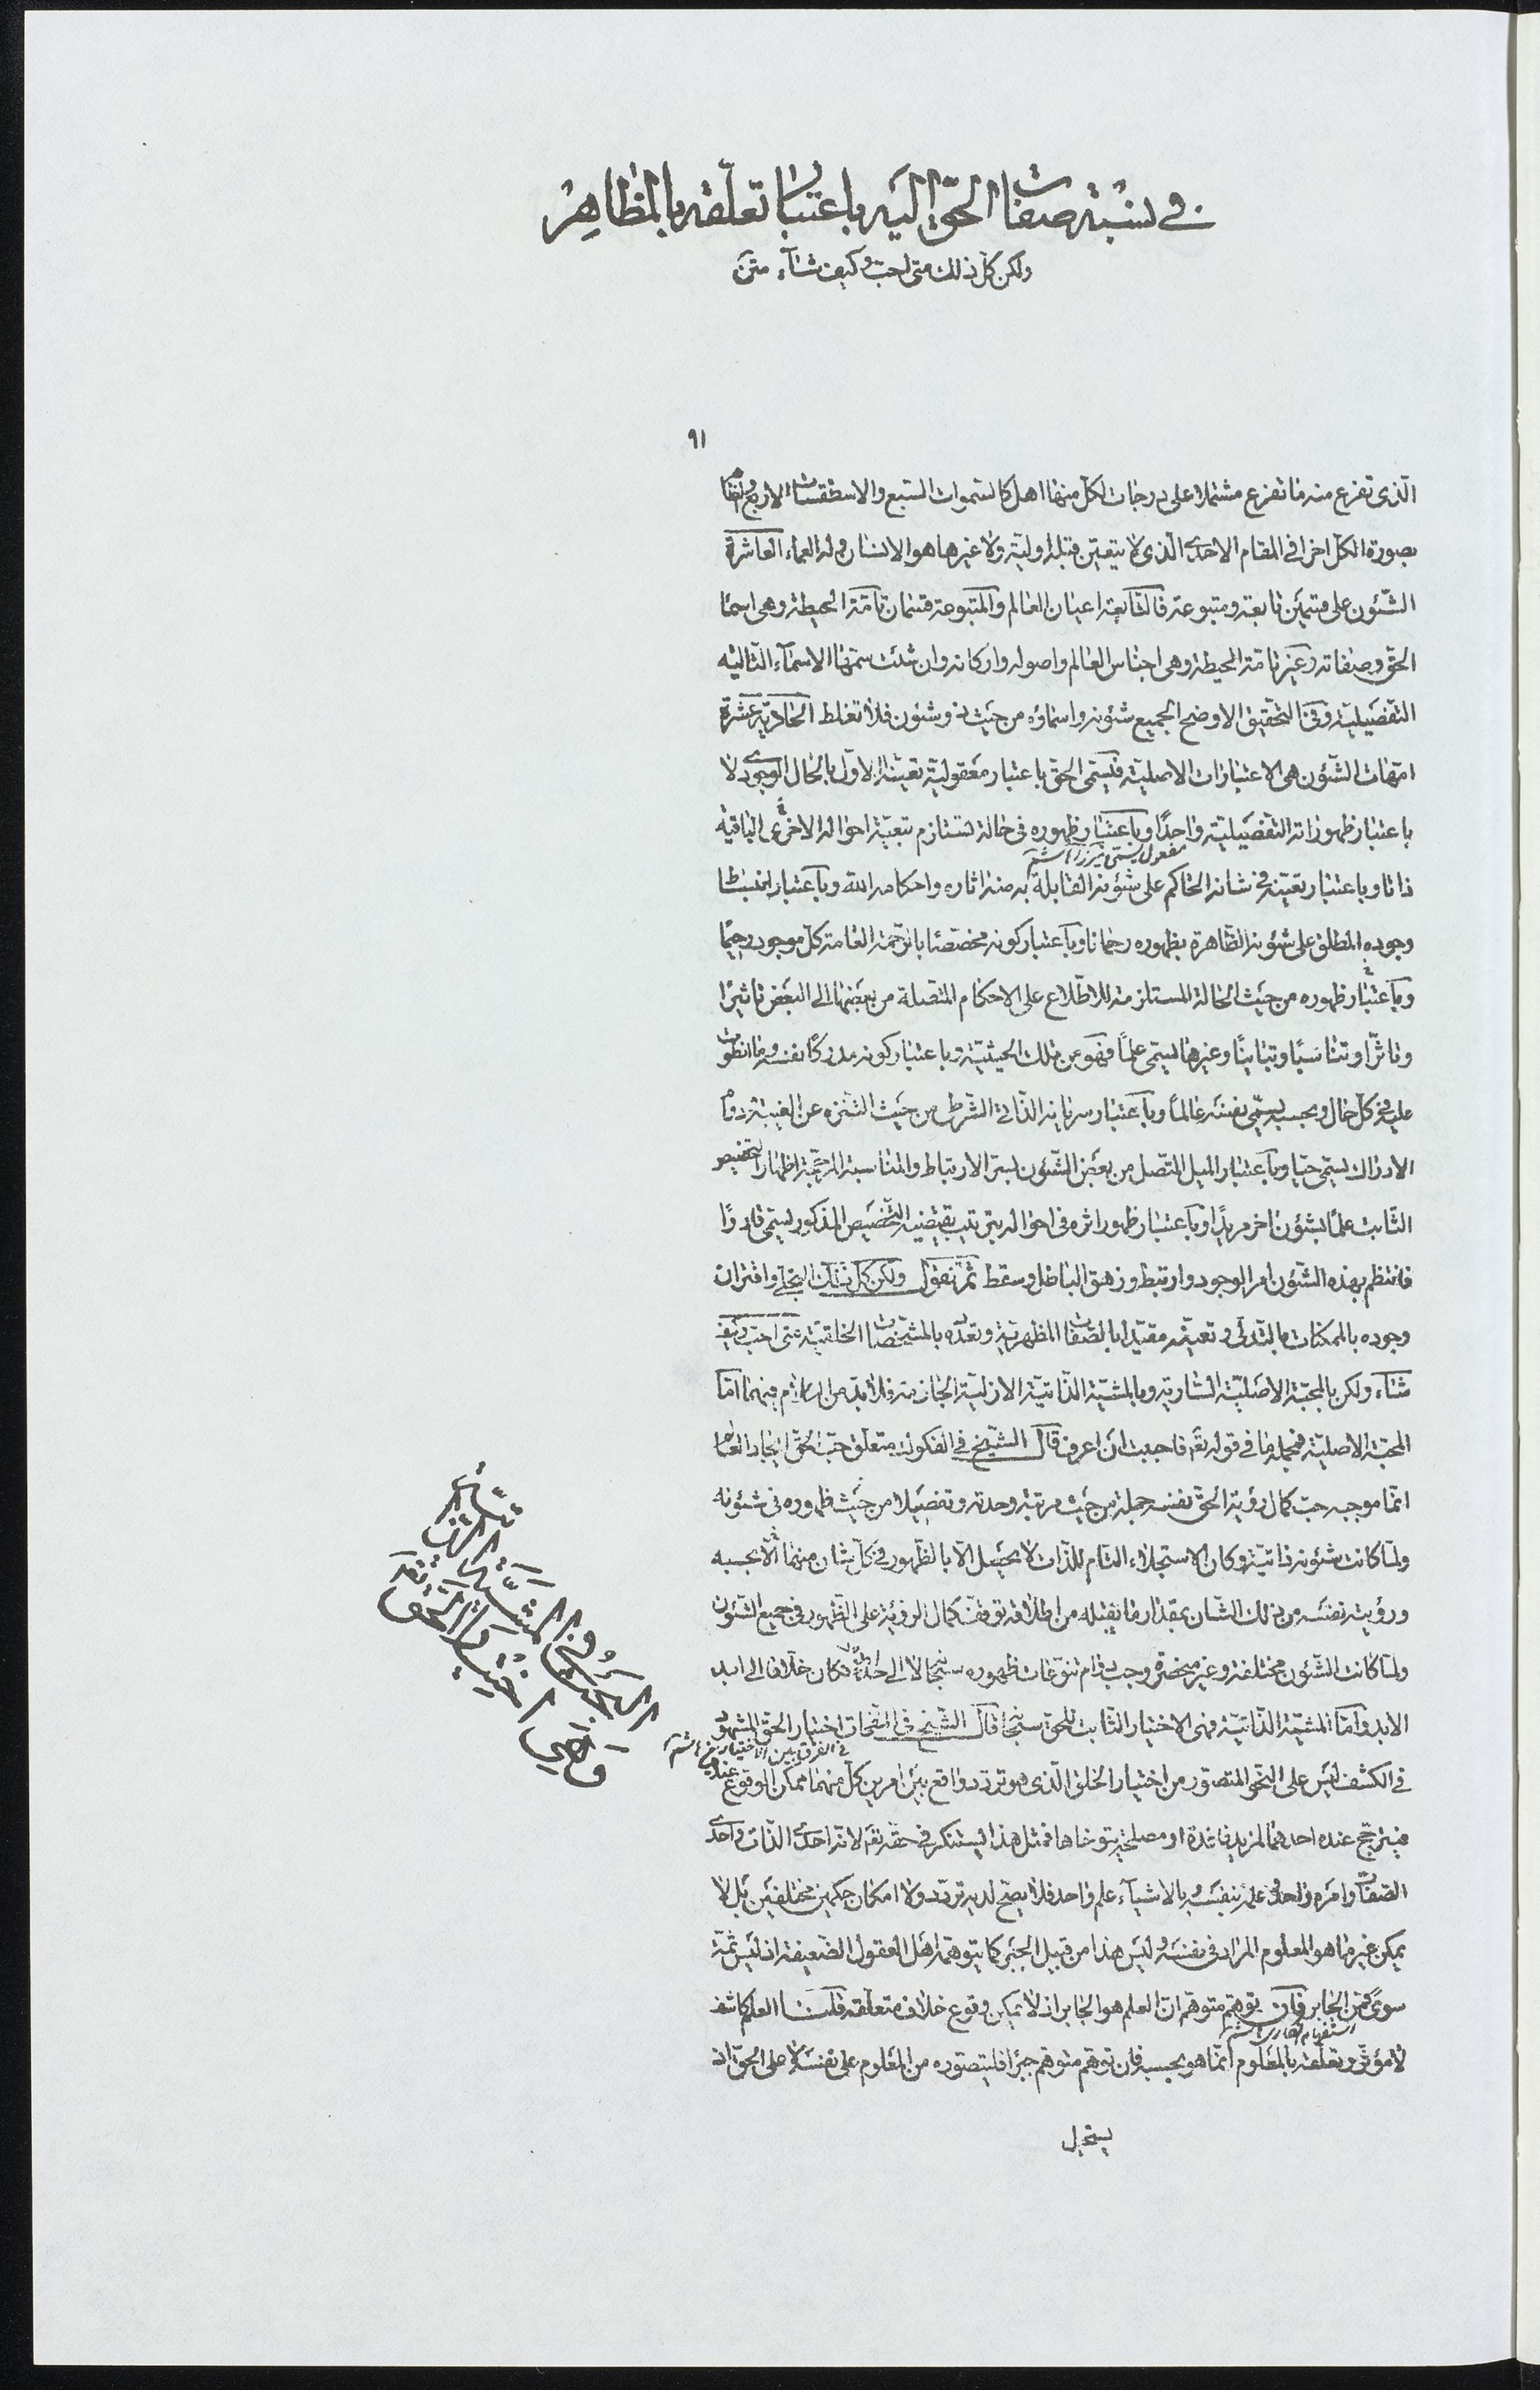 في نسبة صفات الحق اليه باعتبار تعلقه بالمظاهر
ولكن كل ذلك متى احب وكيف شاء متن
٩١
الذى تفرع منه ما تفرع مشتملا على درجات لكل منها اهل كالسموات السبع والاسطقسات الاربع والقائم
بصورة الكل اخرا في المقام الاحدى الذى لا يتعين قبله اولية ولا غيرها هو الانسان وله العماء العاشرة
الشئون على قسمين تابعة ومتبوعة فالتابعة اعيان العالم والمتبوعة قسمان تامة الحيطة وهى اسماء
الحق وصفاته وغير تامة الحيطة وهى اجناس العالم واصوله واركانه وان شئت سمها الاسماء التالية
التفصيلية وفى التحقيق الاوضح الجميع شئونه واسماؤه من حيث هو ذو شئون فلا تغلط الحادية عشرة
امهات الشئون هى الاعتبارات الاصلية فيسمى الحق باعتبار معقولية تعينه الاول بالحال الوجودى لا
باعتبار ظهوراته التفصيلية واحدا وباعتبار ظهوره فى حالة تستلزم تبعية احواله الاخرى الباقية
مفعول يسمى
ذاتا وباعتبار تعينه فى شانه الحاكم على شئونه القابلة به منه اثاره واحكامه الله وباعتبار انبساط
وجوده المطلق على شئونه الظاهرة بظهوره رحمانا وباعتبار كونه مخصصا بالرحمة العامة كل موجود رحيما
وباعتبار ظهوره من حيث الحالة المستلزمة للاطلاع على الاحكام المتصلة من بعضها الى البعض تاثيرا
وتاثرا وتناسبا وتباينا وغيرها يسمى علما فهو من تلك الحيثية وباعتبار كونه مدركا نفسه وما انطوت
عليه فى كل حال وبحسبه يسمى نفسه عالما وباعتبار سريانه الذاتى الشرطى من حيث التنزه عن الغيبة ودوام
الادراك يسمى حيا وباعتبار الميل المتصل من بعض الشئون بسر الارتباط والمناسبة المرجحة اظهار التخصيص
الثابت علما بشؤن اخر مريدا وباعتبار ظهور اثره فى احواله بترتيب يقتضيه التخصيص المذكور يسمى قادرا
فانتظم بهذه الشئون امر الوجود وارتبط وزهق الباطل وسقط ثم نقول ولكن كل ذلك التجلى واقتران
وجوده بالممكنات بالتدلى وتعينه مقيدا بالصفات المظهرية وتعدده بالمشخصات الخلقية متى احب وكيف
شاء ولكن بالمحبة الاصلية السارية وبالمشية الذاتية الازلية الجازمة فلا بد من الكلام فيهما اما
المحبة الاصلية فمجملها فى قوله تعم فاحببت ان اعرف قال الشيخ فى الفكوك متعلق حب الحق ايجاد العالم
انما موجبه حب كمال رؤية الحق نفسه جملة من حيث مرتبة وحدته وتفصيلا من حيث ظهوره فى شئونه
ولما كانت شئونه ذاتية وكان الاستجلاء التام للذات لا يحصل الا بالظهور فى كل شان منها الا بحسبه
ورؤيته نفسه من ذلك الشان بمقدار ما يقبله من اطلاقه توقف كمال الرؤية على الظهور فى جميع الشئون
ولما كانت الشئون مختلفة وغير منحصرة وجب دوام تنوعات ظهوره سبحانه لا الى حد فكان خلاقا الى ابد
الابد واما المشية الذاتية فهى الاختيار الثابت للحق سبحانه قال الشيخ فى النفحات اختيار الحق المشهود
فى الفرق بين الاختيارين
فى الكشف ليس على النحو المتصور من اختيار الخلق الذى هو تردد واقع بين امرين كل منهما ممكن الوقوع عنده
فيترجح عنده احدهما لمزيد فائدة او مصلحة يتوخاها فمثل هذا يستنكر فى حقه تعم لانه احدى الذات واحدى
الصفات وامره واحد وعلمه بنفسه وبالاشياء علم واحد فلا يصح لديه تردد ولا امكان حكمين مختلفين بل لا
يمكن غير ما هو المعلوم المراد فى نفسه وليس هذا من قبيل الجبر كما يتوهمه اهل العقول الضعيفة اذ ليس ثمة
سوى فمن الجابر فان توهم متوهم ان العلم هو الجابر اذ لا يمكن وقوع خلاف متعلقه قلنا العلم كاشف
استفهام انكارى
لا مؤثر وتعلقه بالمعلوم انما هو بحسبه فان توهم متوهم جبرا فليتصوره من المعلوم على نفسه لا على الحق اذ
يستحيل
المشية الذاتية
وهى اختيار الحق تعم